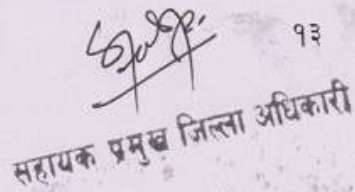 १३
सहायक प्रमुख जिल्ला अधिकारी